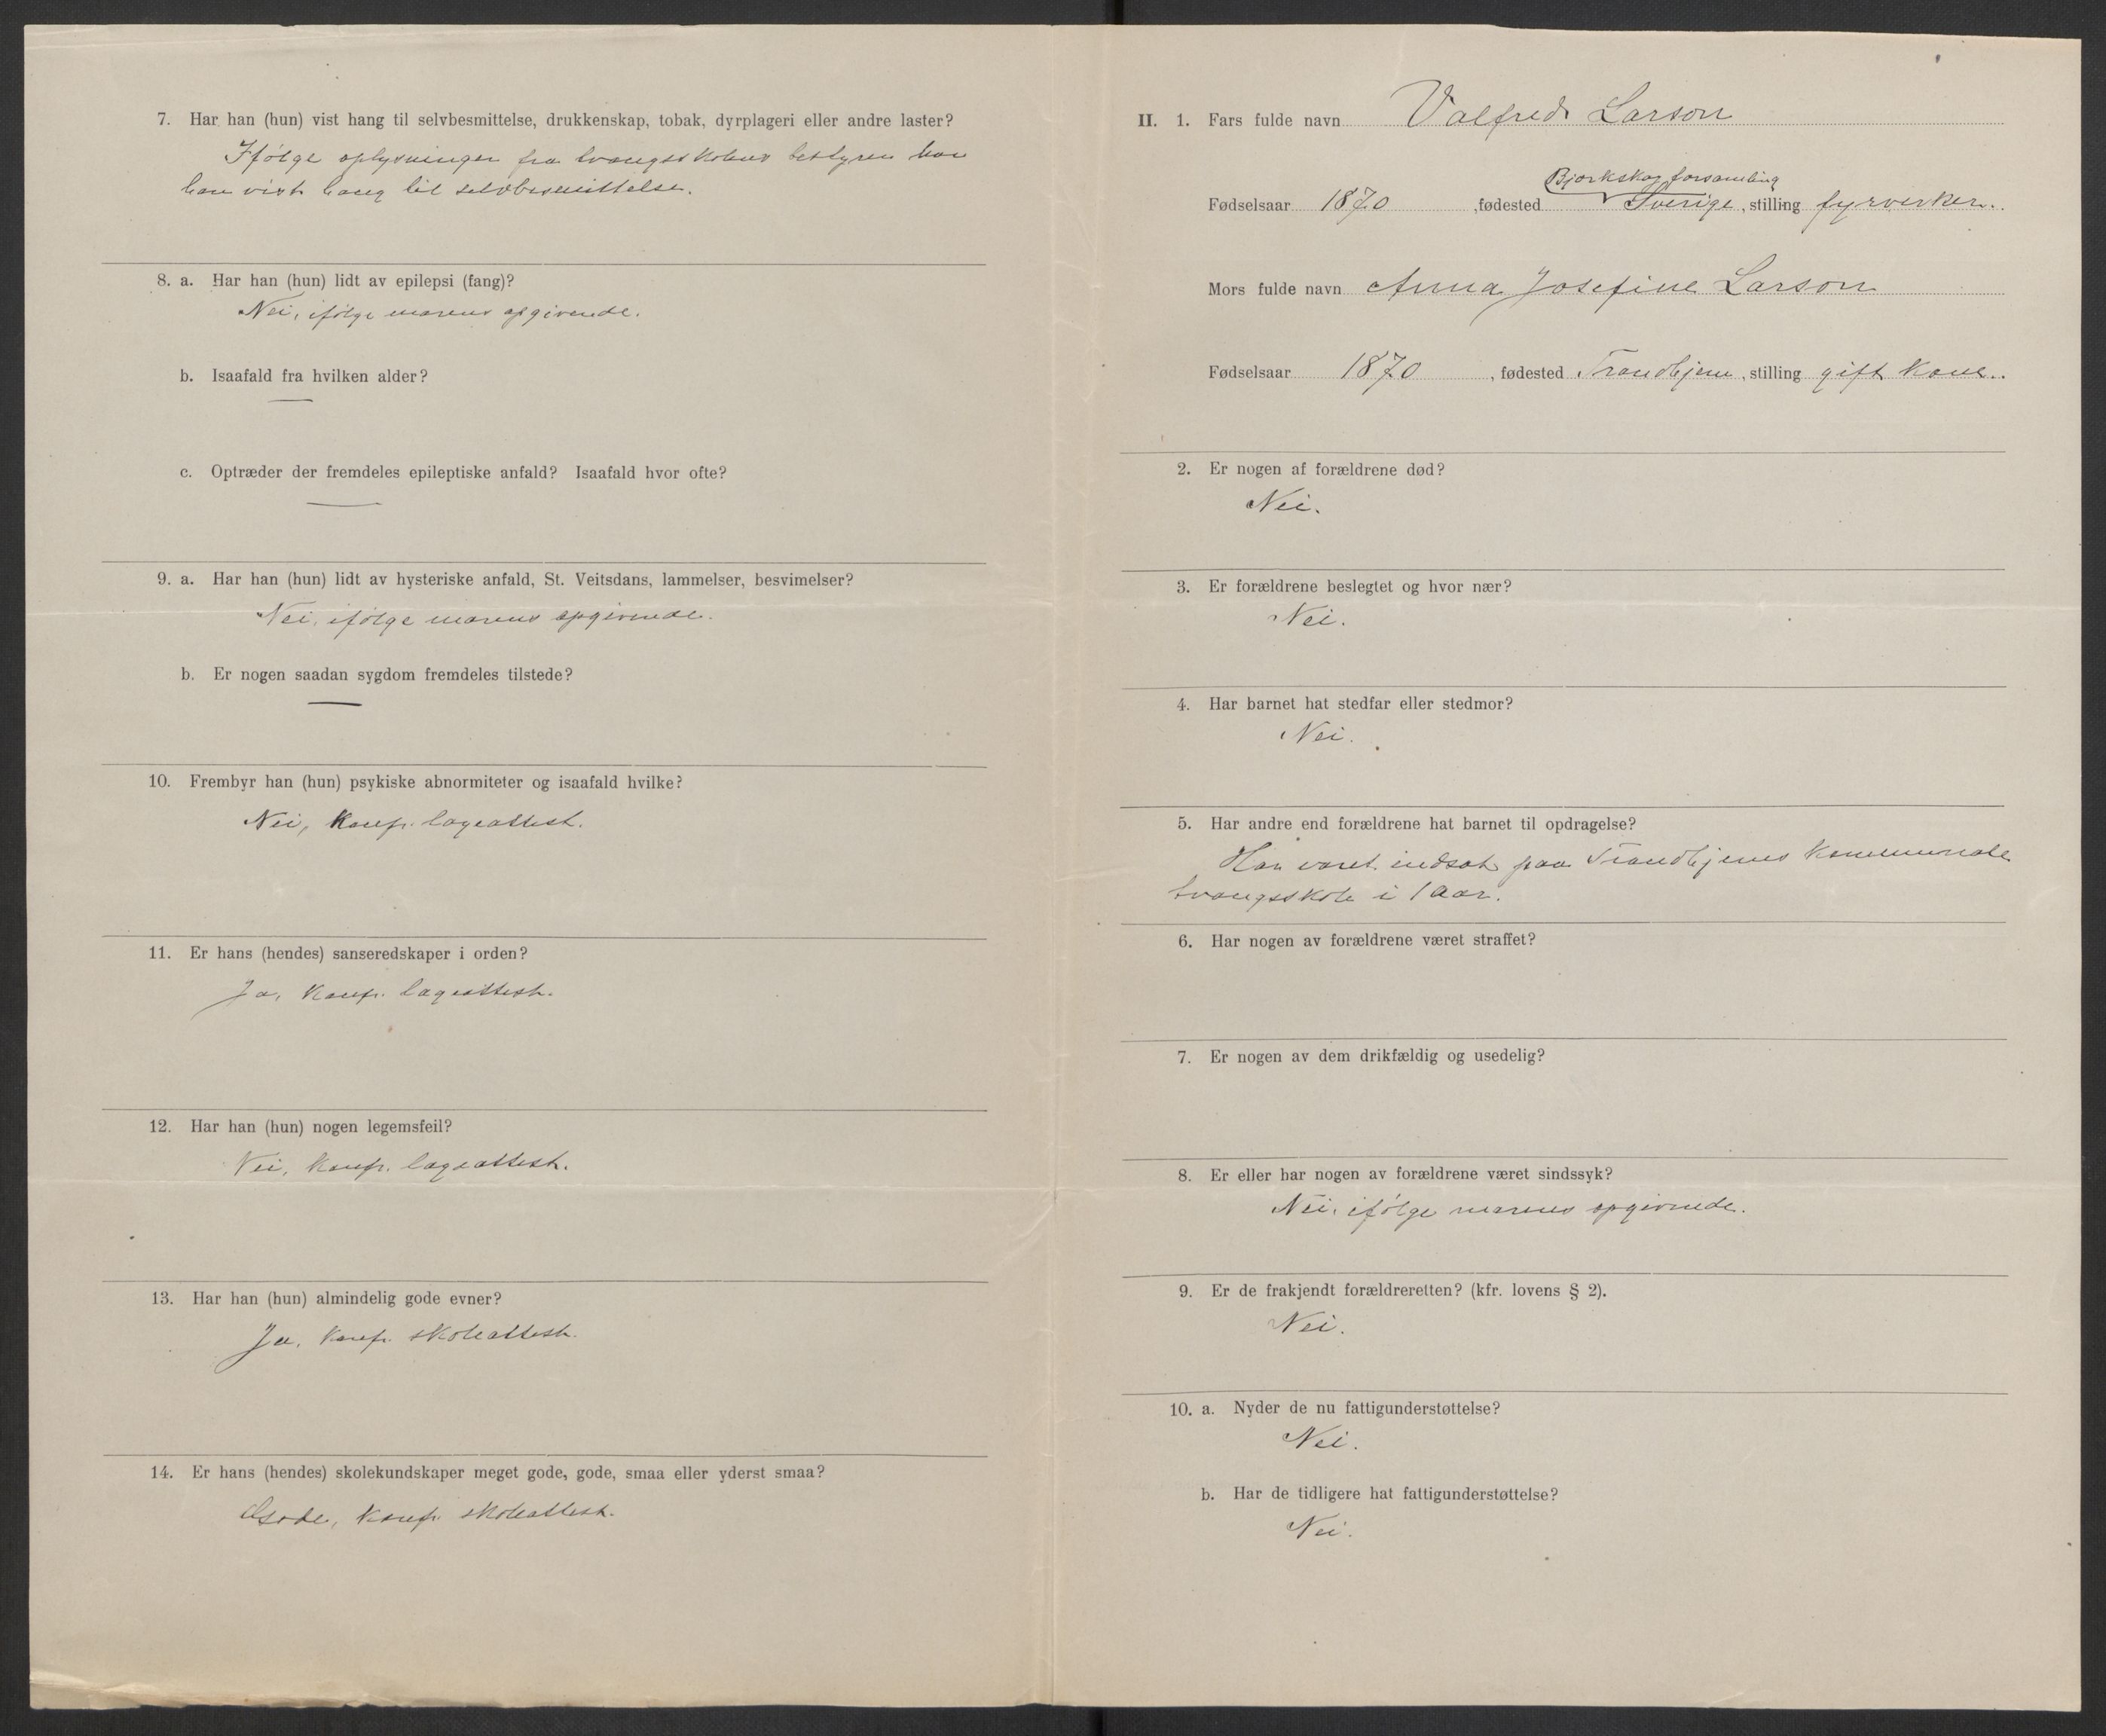 7. Har han (hun) vist hang til selvbesmittelse, drukkenskap, tobak, dyrplageri eller andre laster?
Ifølge oplysninger fra tvangsskolens bestyrer har
han vist hang til selvbesmittelse.
8. a. Har han (hun) lidt av epilepsi (fang)?
Nei, ifølge morens opgivende.
b. Isaafald fra hvilken alder?
—
c. Optræder der fremdeles epileptiske anfald? Isaafald hvor ofte?
—
9. a. Har han (hun) lidt av hysteriske anfald, St. Veitsdans, lammelser, besvimelser?
Nei, ifølge morens opgivende.
b. Er nogen saadan sygdom fremdeles tilstede?
—
10. Frembyr han (hun) psykiske abnormiteter og isaafald hvilke?
Nei, konfr. lægeattest.
11. Er hans (hendes) sanseredskaper i orden?
Ja, konfr. lægeattest.
12. Har han (hun) nogen legemsfeil?
Nei, konfr. lægeattest.
13. Har han (hun) almindelig gode evner?
Ja, konfr. skoleattest.
14. Er hans (hendes) skolekundskaper meget gode, gode, smaa eller yderst smaa?
Gode, konfr. skoleattest.
II. 1. Fars fulde navn Valfred Larson
Bjorkskog forsamling
Fødselsaar 1870, fødested Sverige, stilling fyrverker.
Mors fulde navn Anna Josefine Larson
Fødselsaar 1870, fødested Trondhjem, stilling gift kone.
2. Er nogen af forældrene død?
Nei.
3. Er forældrene beslegtet og hvor nær?
Nei.
4. Har barnet hat stedfar eller stedmor?
Nei.
5. Har andre end forældrene hat barnet til opdragelse?
Har været indsat paa Trondhjems kommunale
tvangsskole i 1 aar.
6. Har nogen av forældrene været straffet?
7. Er nogen av dem drikfældig og usedelig?
8. Er eller har nogen av forældrene været sindssyk?
Nei, ifølge morens opgivende.
9. Er de frakjendt forældreretten? (kfr. lovens § 2).
Nei.
10. a. Nyder de nu fattigunderstøttelse?
Nei.
b. Har de tidligere hat fattigunderstøttelse?
Nei.